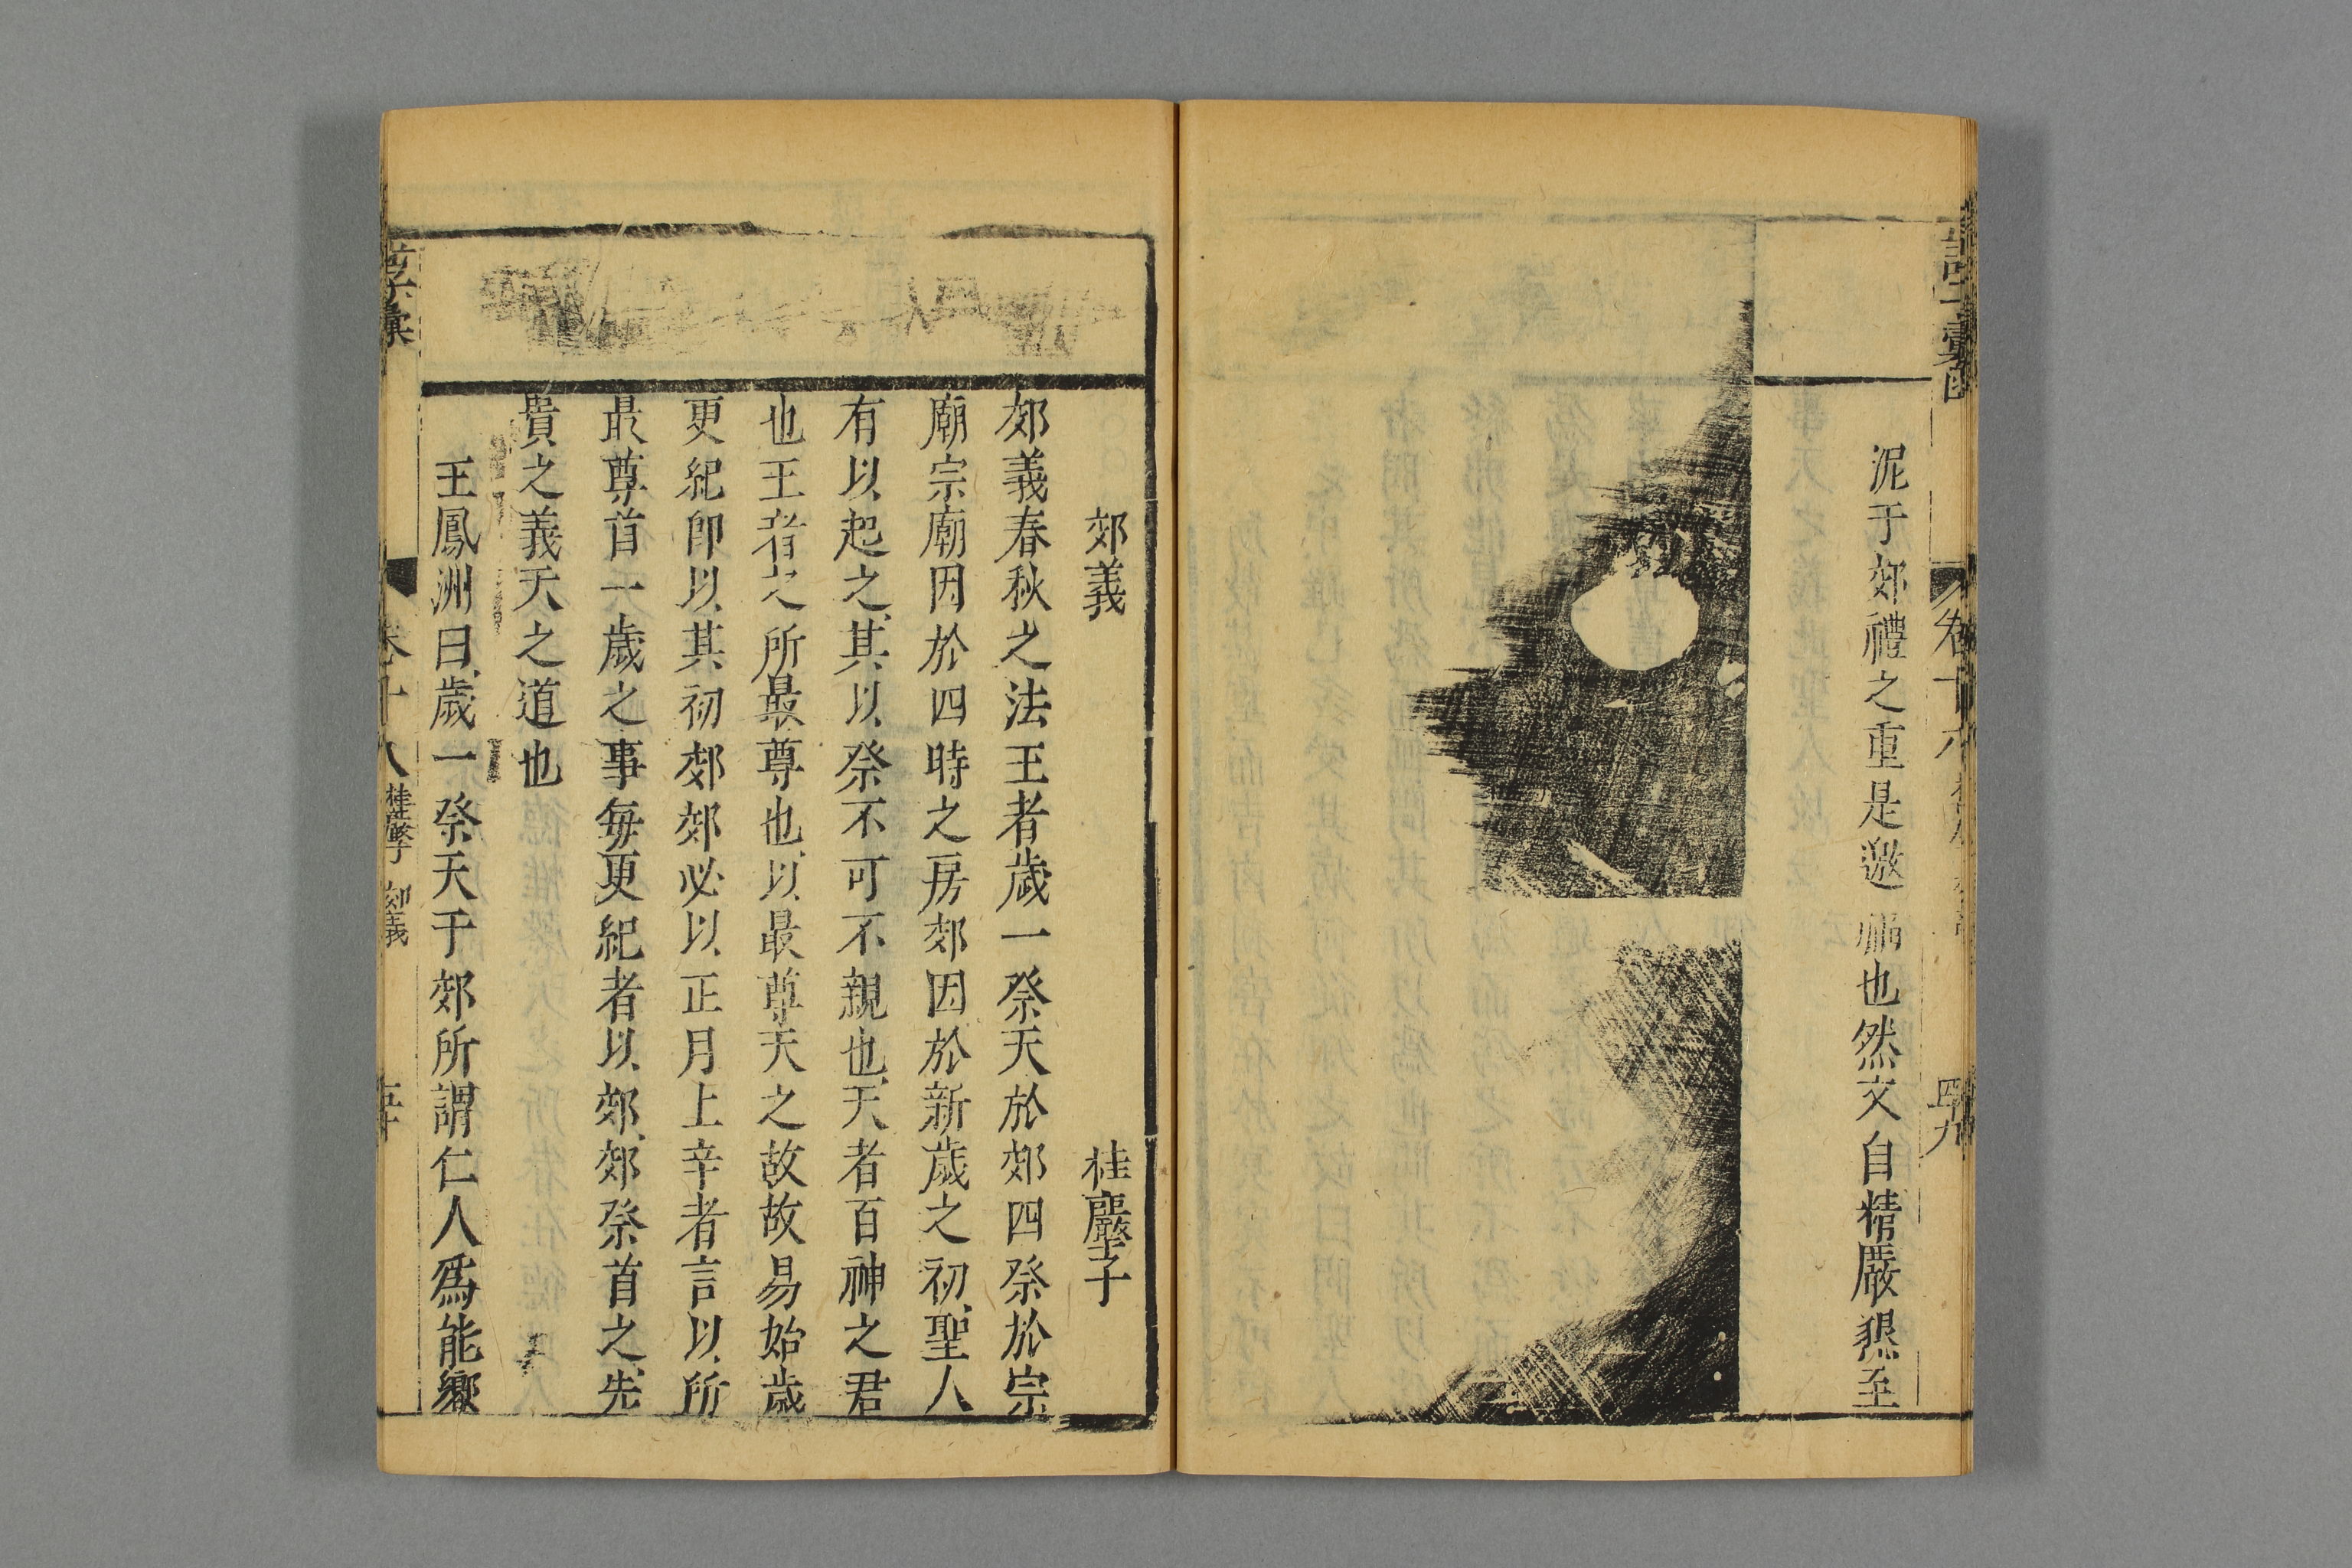 泥于郊禮之重是邀福也然文自精嚴懇至
郊義 桂巖子
郊義春秋之法王者歲一祭天於郊四祭於宗
廟宗廟因於四時之易郊因於新歲之初聖人
有以起之其以祭不可不親也天者百神之君
也王者之所最尊也以最尊天之故故易始歲
更紀即以其初郊郊必以正月上辛者言以所
最尊首一歲之事每更紀者以郊郊祭首之先
貴之義天之道也
王鳳洲曰歲一祭天于郊所謂仁人爲能饗
卷十八
郊義
五十